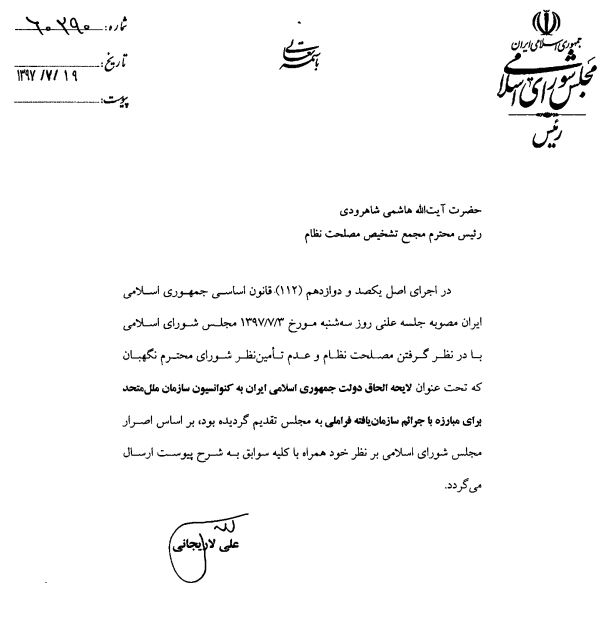 جمهوری اسلامی ایران
مجلس شورای اسلامی
رئیس
باسمه تعالی
شماره: ۶۰۲۹۰
تاریخ: ۱۳۹۷/۷/۱۹
پیوست:
حضرت آیت‌الله هاشمی شاهرودی
رئیس محترم مجمع تشخیص مصلحت نظام
در اجرای اصل یکصد و دوازدهم (۱۱۲) قانون اساسی جمهوری اسلامی
ایران مصوبه جلسه علنی روز سه‌شنبه مورخ ۱۳۹۷/۷/۳ مجلس شورای اسلامی
با در نظر گرفتن مصلحت نظام و عدم تأمین‌نظر شورای محترم نگهبان
که تحت عنوان لایحه الحاق دولت جمهوری اسلامی ایران به کنوانسیون سازمان ملل‌متحد
برای مبارزه با جرائم سازمان‌یافته فراملی به مجلس تقدیم گردیده بود، بر اساس اصرار
مجلس شورای اسلامی بر نظر خود همراه با کلیه سوابق به شرح پیوست ارسال
می‌گردد.
علی لاریجانی